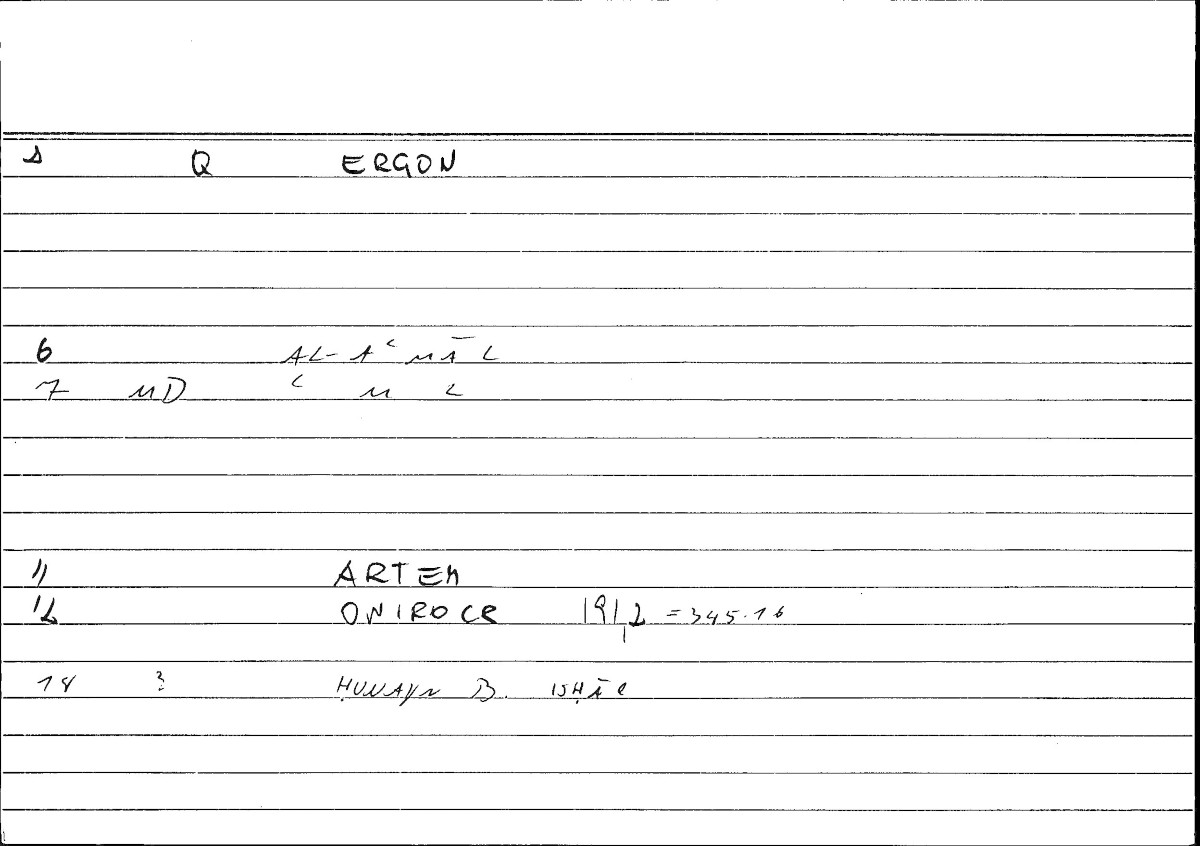 1 Q ERGON
6 AL-Aʿ MĀL
7 MD ʿ M L
11 ARTEM
12 ONIROCR 191,2 = 345.16
14 ? ḤUNAYN B. ISḤĀ